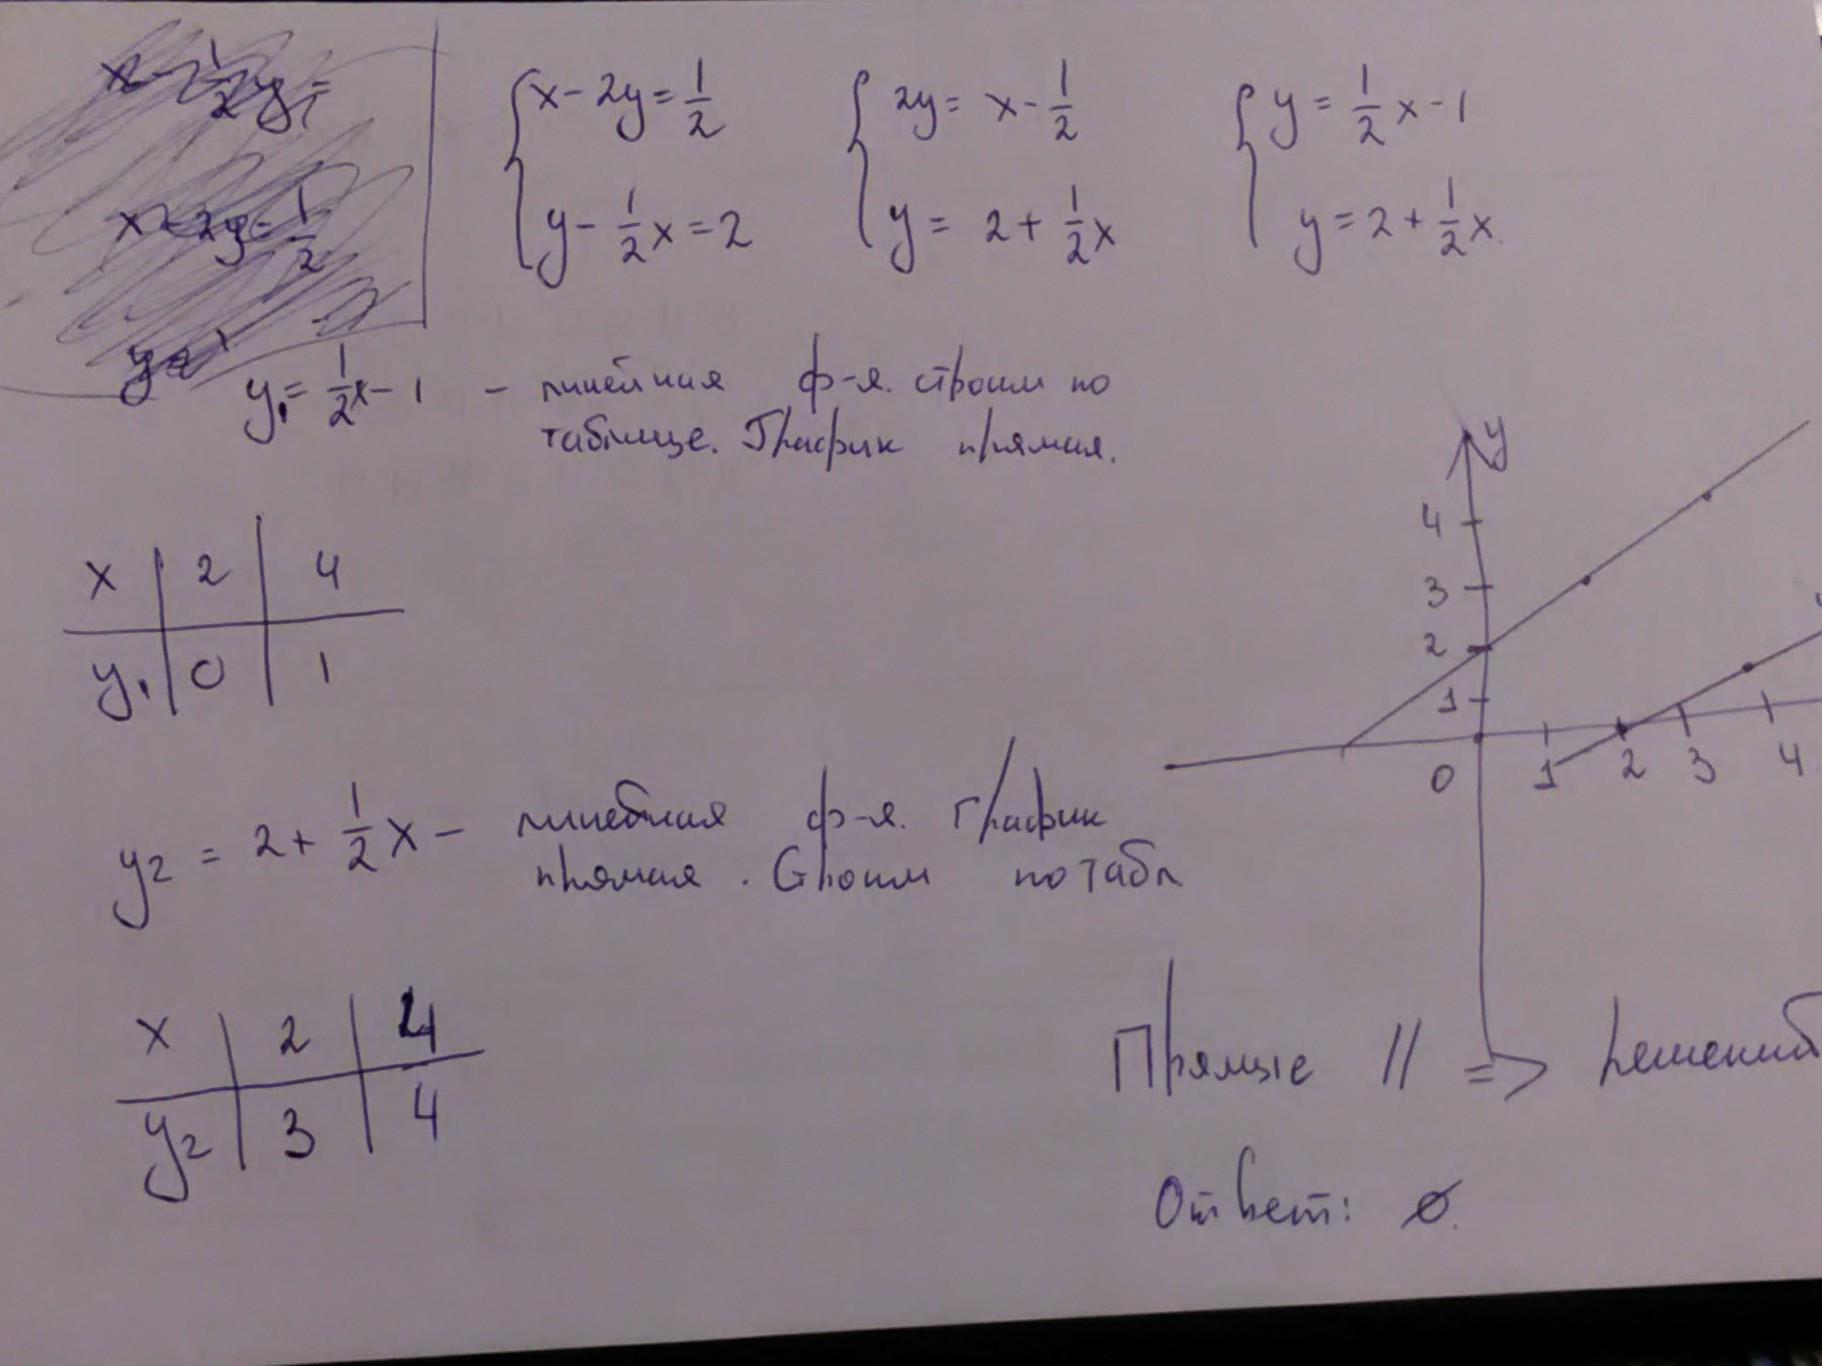 x - 2y = 1/2
y - 1/2 x = 2
2y = x - 1/2
y = 2 + 1/2 x
y = 1/2 x - 1
y = 2 + 1/2 x
y₁ = 1/2 x - 1 - линейная ф-я. строим по
таблице. График прямая.
x 2 4
y₁ 0 1
y
4
3
2
1
0 1 2 3 4
y₂ = 2 + 1/2 x - линейная ф-я. График
прямая. Строим по табл
x 2 4
y₂ 3 4
Прямые // => решений
Ответ: ∅.